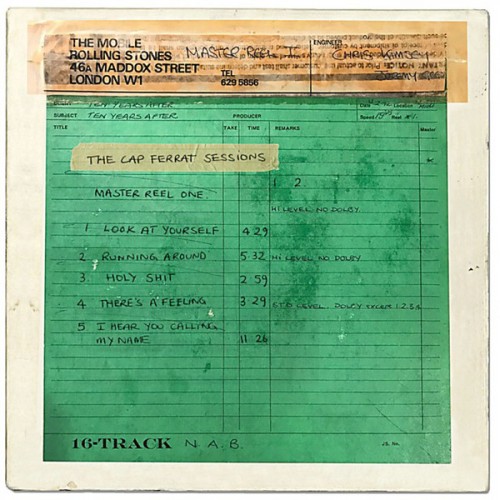 THE MOBILE
ROLLING STONES MASTER REEL II ENGINEER CHRIS KIMSEY
46A MADDOX STREET
LONDON W1 TEL 629 5856
TEN YEARS AFTER
SUBJECT TEN YEARS AFTER PRODUCER
TITLE TAKE TIME REMARKS Master
THE CAP FERRAT SESSIONS
MASTER REEL ONE. 1 2
HI LEVEL NO DOLBY.
1 LOOK AT YOURSELF 4 29
2 RUNNING AROUND 5 32 HI LEVEL NO DOLBY
3. HOLY SHIT 2 59
4 THERE'S A FEELING 3 29 STD LEVEL. DOLBY
5 I HEAR YOU CALLING
MY NAME 11 26
16-TRACK N.A.B.